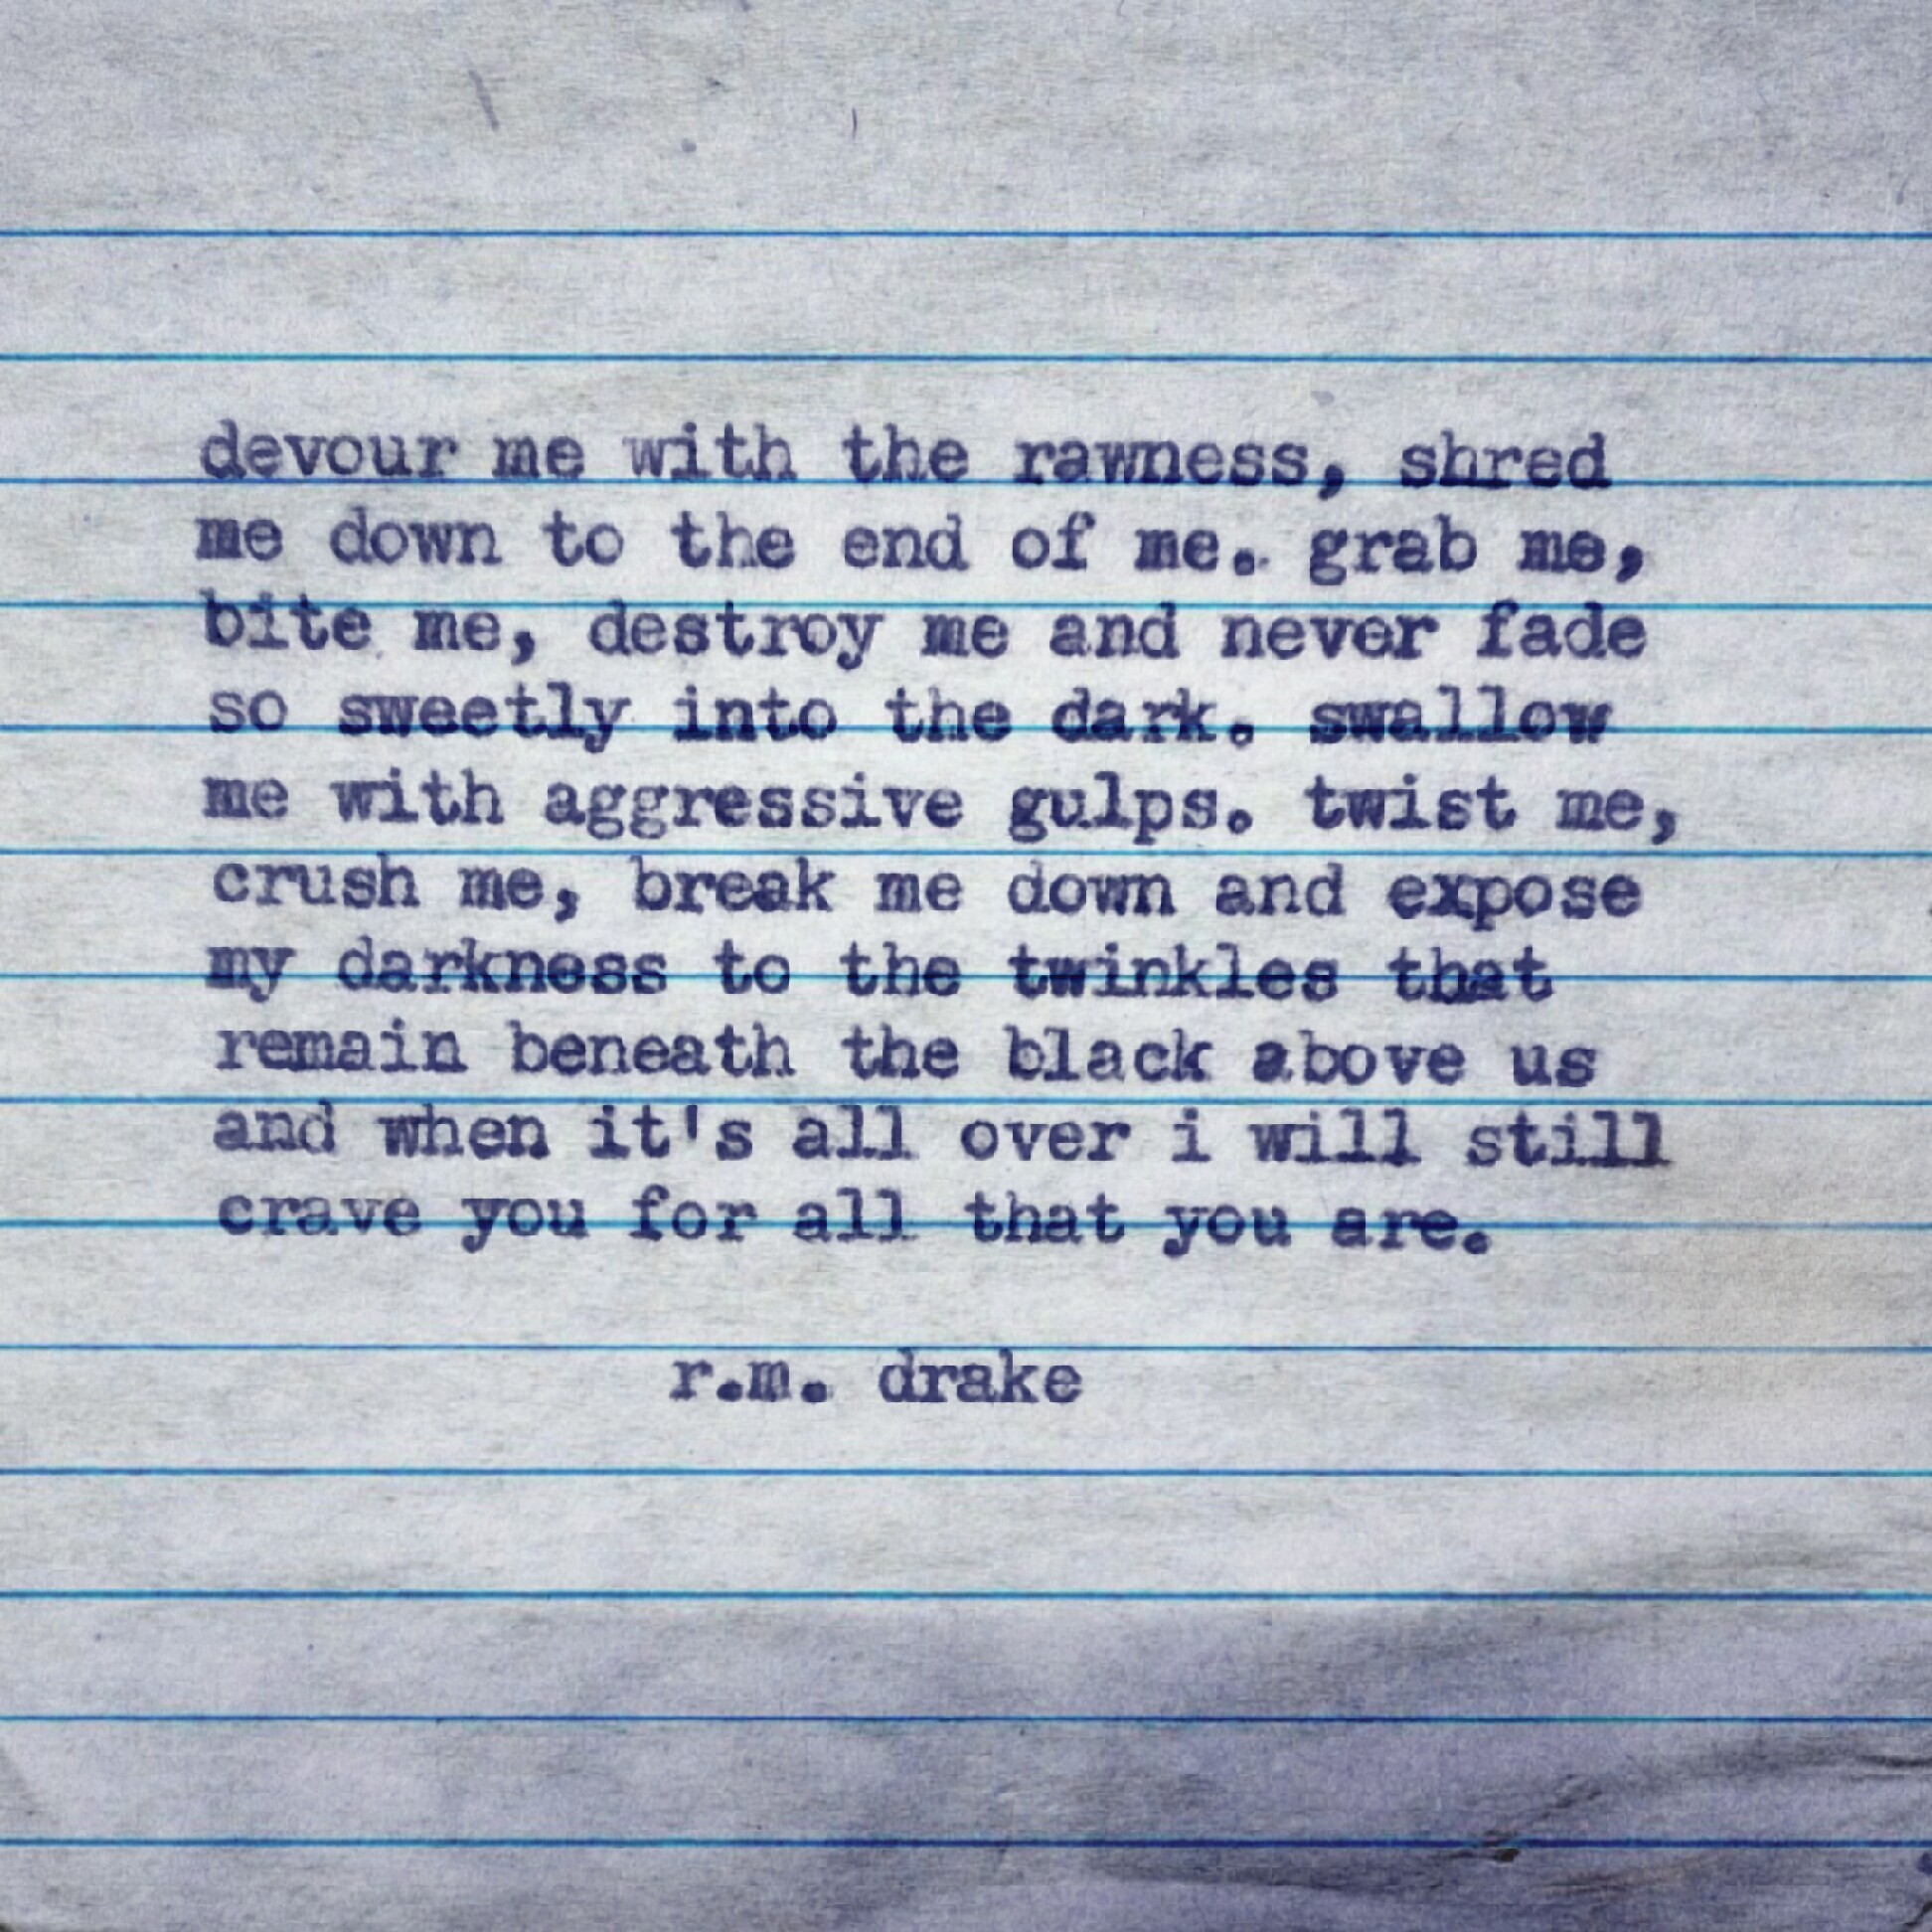 devour me with the rawness, shred
me down to the end of me. grab me,
bite me, destroy me and never fade
so sweetly into the dark. swallow
me with aggressive gulps. twist me,
crush me, break me down and expose
my darkness to the twinkles that
remain beneath the black above us
and when it's all over i will still
crave you for all that you are.
r.m. drake